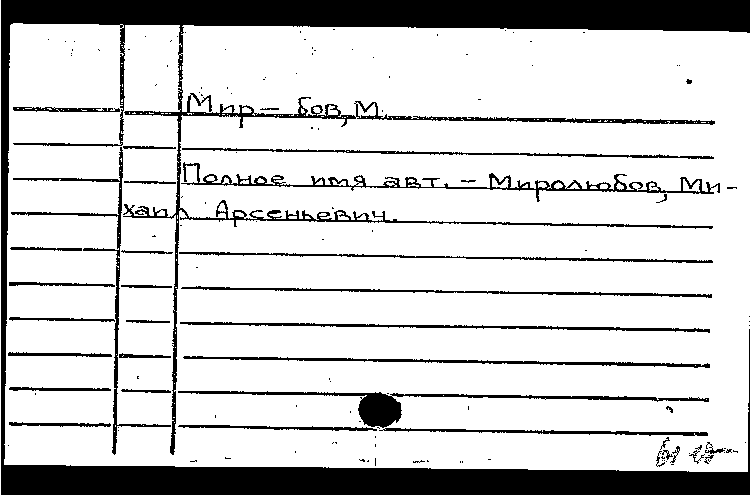 Мир – бов, М.
Полное имя авт. – Миролюбов, Ми-
хаил Арсеньевич.